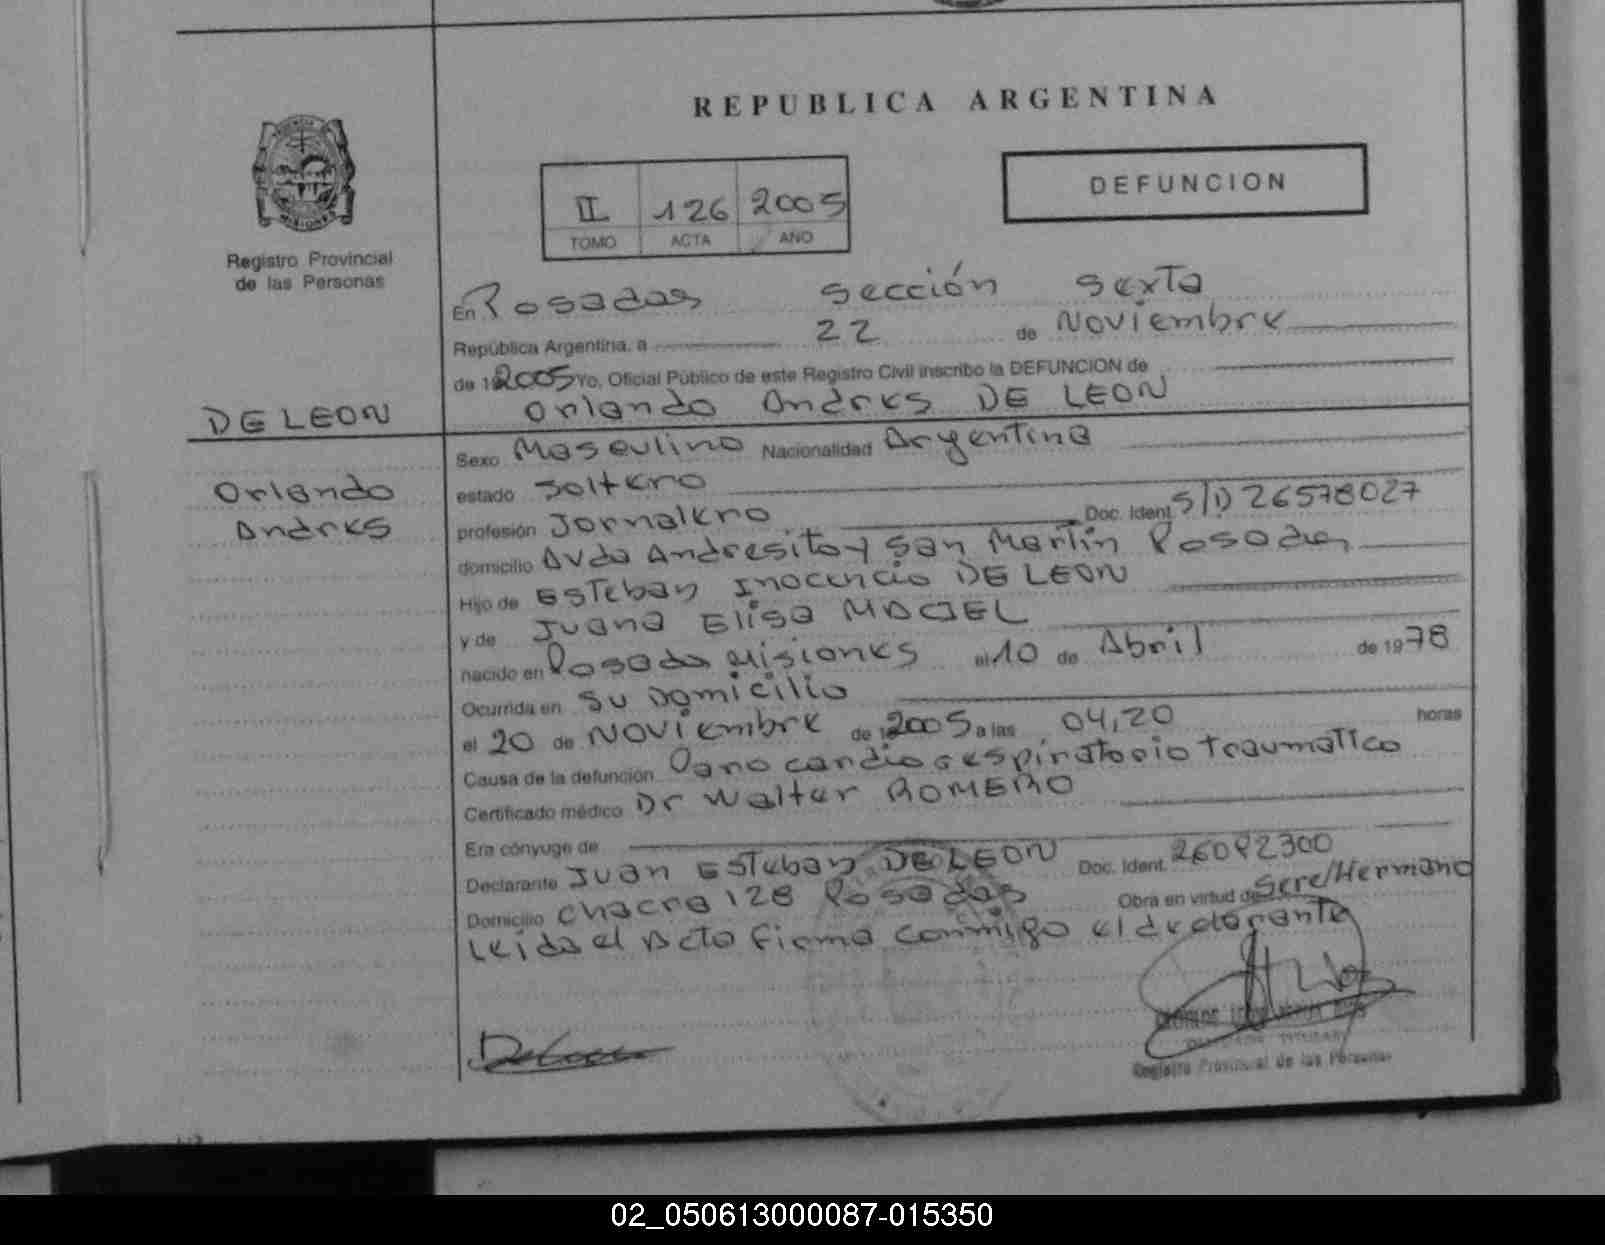 REPUBLICA ARGENTINA
MISIONES
Registro Provincial
de las Personas
II 126 2005
TOMO ACTA AÑO
DEFUNCION
En Posadas sección sexta
República Argentina, a 22 de Noviembre
de 2005 Yo, Oficial Público de este Registro Civil inscribo la DEFUNCION de
DE LEON
Orlando Andres DE LEON
Orlando
Andres
Sexo Masculino Nacionalidad Argentina
estado Soltero
profesión Jornalero Doc. Ident. S/D 26578027
domicilio Avda Andresito y San Martín Posadas
Hijo de Esteban Inocencio DE LEON
y de Juana Elisa MACIEL
nacido en Posadas Misiones el 10 de Abril de 1978
Ocurrida en su Domicilio
el 20 de Noviembre de 2005 a las 04,20 horas
Causa de la defunción Paro cardio respiratorio traumatico
Certificado médico Dr Walter ROMERO
Era cónyuge de
Declarante Juan Esteban DE LEON Doc. Ident. 26092300
Domicilio Chacra 128 Posadas Obra en virtud de Sere/Hermano
Leida el Acta firma conmigo el declarante
Registro Provincial de las Personas
02_050613000087-015350